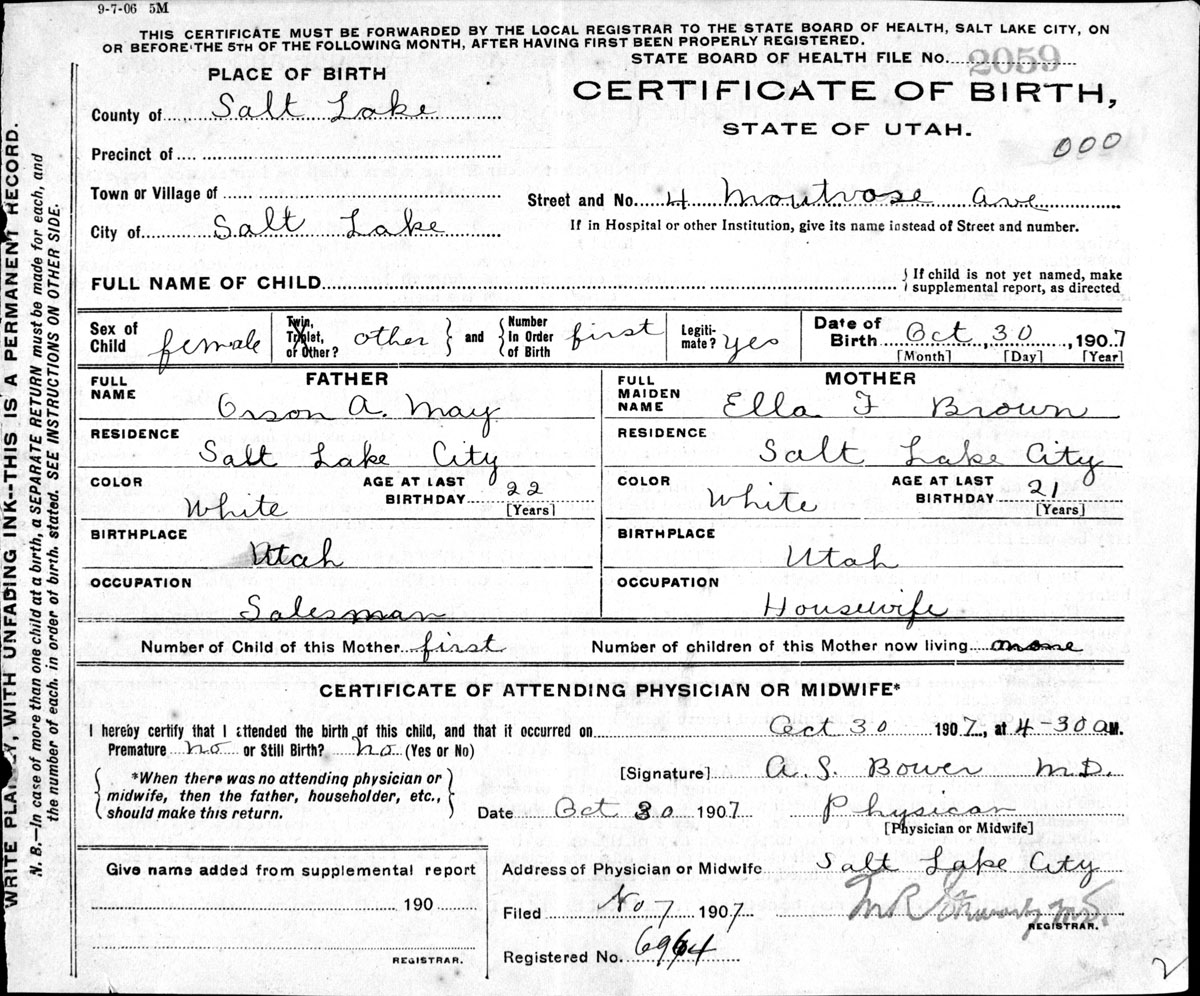 9-7-06 5M
THIS CERTIFICATE MUST BE FORWARDED BY THE LOCAL REGISTRAR TO THE STATE BOARD OF HEALTH, SALT LAKE CITY, ON
OR BEFORE THE 5TH OF THE FOLLOWING MONTH, AFTER HAVING FIRST BEEN PROPERLY REGISTERED.
STATE BOARD OF HEALTH FILE No. 2059
PLACE OF BIRTH
CERTIFICATE OF BIRTH,
STATE OF UTAH.
000
County of Salt Lake
Precinct of
Town or Village of
Street and No. 4 Montrose Ave
City of Salt Lake
If in Hospital or other Institution, give its name instead of Street and number.
FULL NAME OF CHILD
{ If child is not yet named, make
supplemental report, as directed
Sex of Child female
Twin, Triplet, or Other? other } and { Number In Order of Birth first
Legitimate? yes
Date of Birth Oct 30, 1907
[Month] [Day] [Year]
FATHER
FULL NAME Orson A. May
RESIDENCE Salt Lake City
COLOR White
AGE AT LAST BIRTHDAY 22 [Years]
BIRTHPLACE Utah
OCCUPATION Salesman
MOTHER
FULL MAIDEN NAME Ella F Brown
RESIDENCE Salt Lake City
COLOR White
AGE AT LAST BIRTHDAY 21 [Years]
BIRTHPLACE Utah
OCCUPATION Housewife
Number of Child of this Mother first
Number of children of this Mother now living none
CERTIFICATE OF ATTENDING PHYSICIAN OR MIDWIFE*
I hereby certify that I attended the birth of this child, and that it occurred on Oct 30 1907, at 4-30 AM.
Premature no or Still Birth? no (Yes or No)
{ *When there was no attending physician or
midwife, then the father, householder, etc.,
should make this return. }
[Signature] A. S. Bower M.D.
Date Oct 30 1907
Physican
[Physician or Midwife]
Give name added from supplemental report
190
REGISTRAR.
Address of Physician or Midwife Salt Lake City
Filed No 7 1907
REGISTRAR.
Registered No.
2
WRITE PLAINLY, WITH UNFADING INK--THIS IS A PERMANENT RECORD.
N. B.—In case of more than one child at a birth, a SEPARATE RETURN must be made for each, and
the number of each, in order of birth, stated. SEE INSTRUCTIONS ON OTHER SIDE.